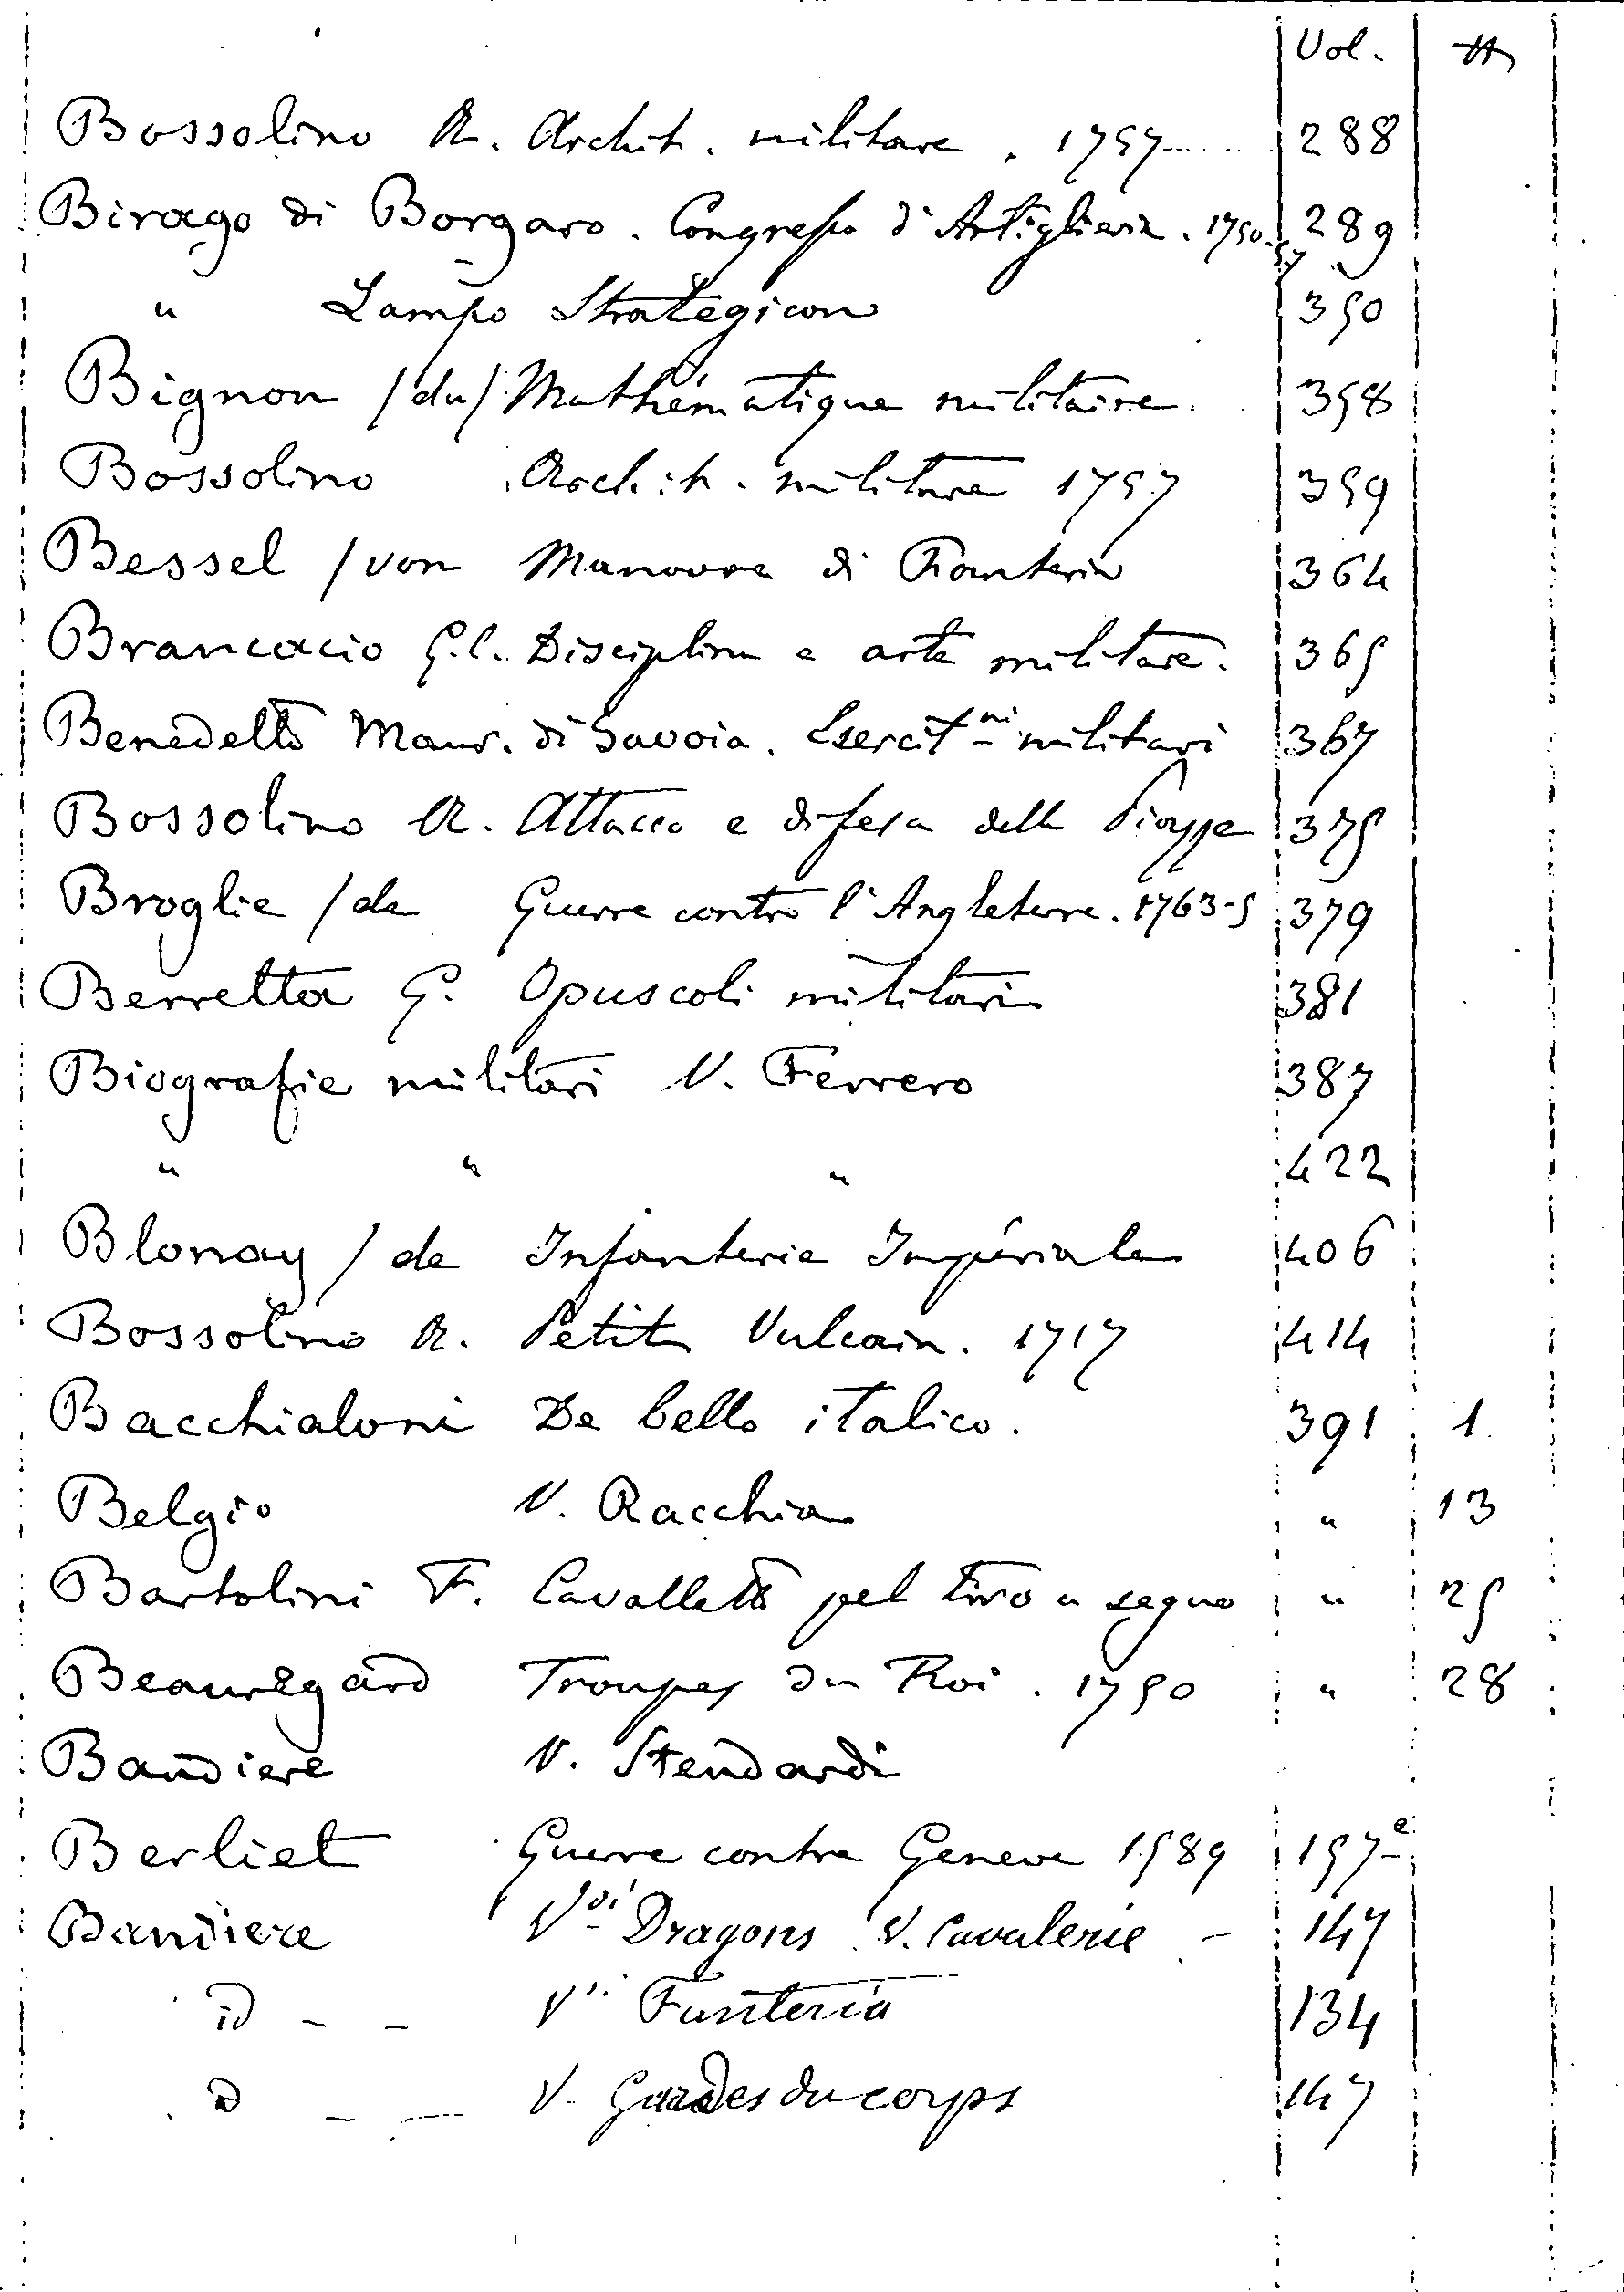 Vol. #
Bossolino A. Archit. militare. 1757 288
Birago di Borgaro. Congresso d'Artiglieria. 1750-57 289
" Lampo Strategicon 350
Bignon /du/ Mathématique militaire. 358
Bossolino Archit. militare 1757 359
Bessel /von Manovre di Fanteria 364
Brancacio G.C. Disciplina e arte militare. 365
Benedetto Maur. di Savoia. Esercit.ni militari 367
Bossolino A. Attacco e difesa delle Piazze 375
Broglie /de Guerre contre l'Angleterre. 1763-5 379
Berretta G. Opuscoli militari 381
Biografie militari V. Ferrero 387
" " " 422
Blonay /de Infanterie Impériale 406
Bossolino A. Petit Vulcain. 1717 414
Bacchialoni De bello italico. 391 1
Belgio V. Racchia " 13
Bartolini F. Cavalletto pel tiro a segno " 25
Beauregard Troupes du Roi. 1750 " 28
Bandiere V. Stendardi
Berliet Guerre contre Geneve 1589 157e
Bandiere Vdi Dragons V. Cavalerie - 147
id - - Vi Fanteria 134
d - - V. Gardes du corps 147